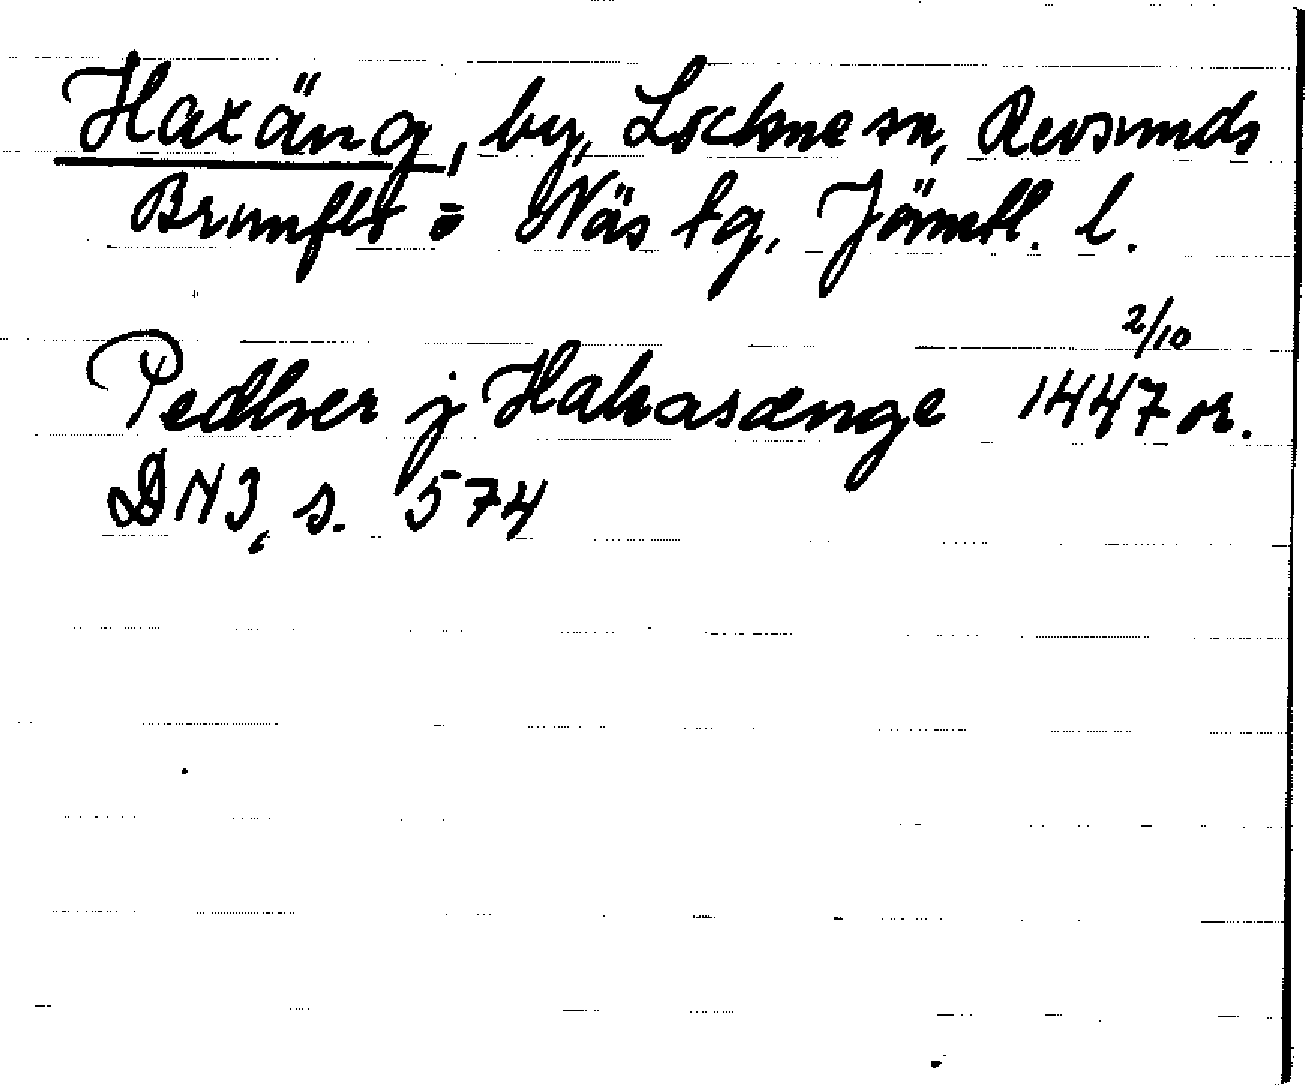 Haxäng, by, Lockne sn, Revsunds
Brunflo o Näs tg, Jämtl. l.
2/10
Pedher j Haksasænge 1447 or.
DN 3, s. 574